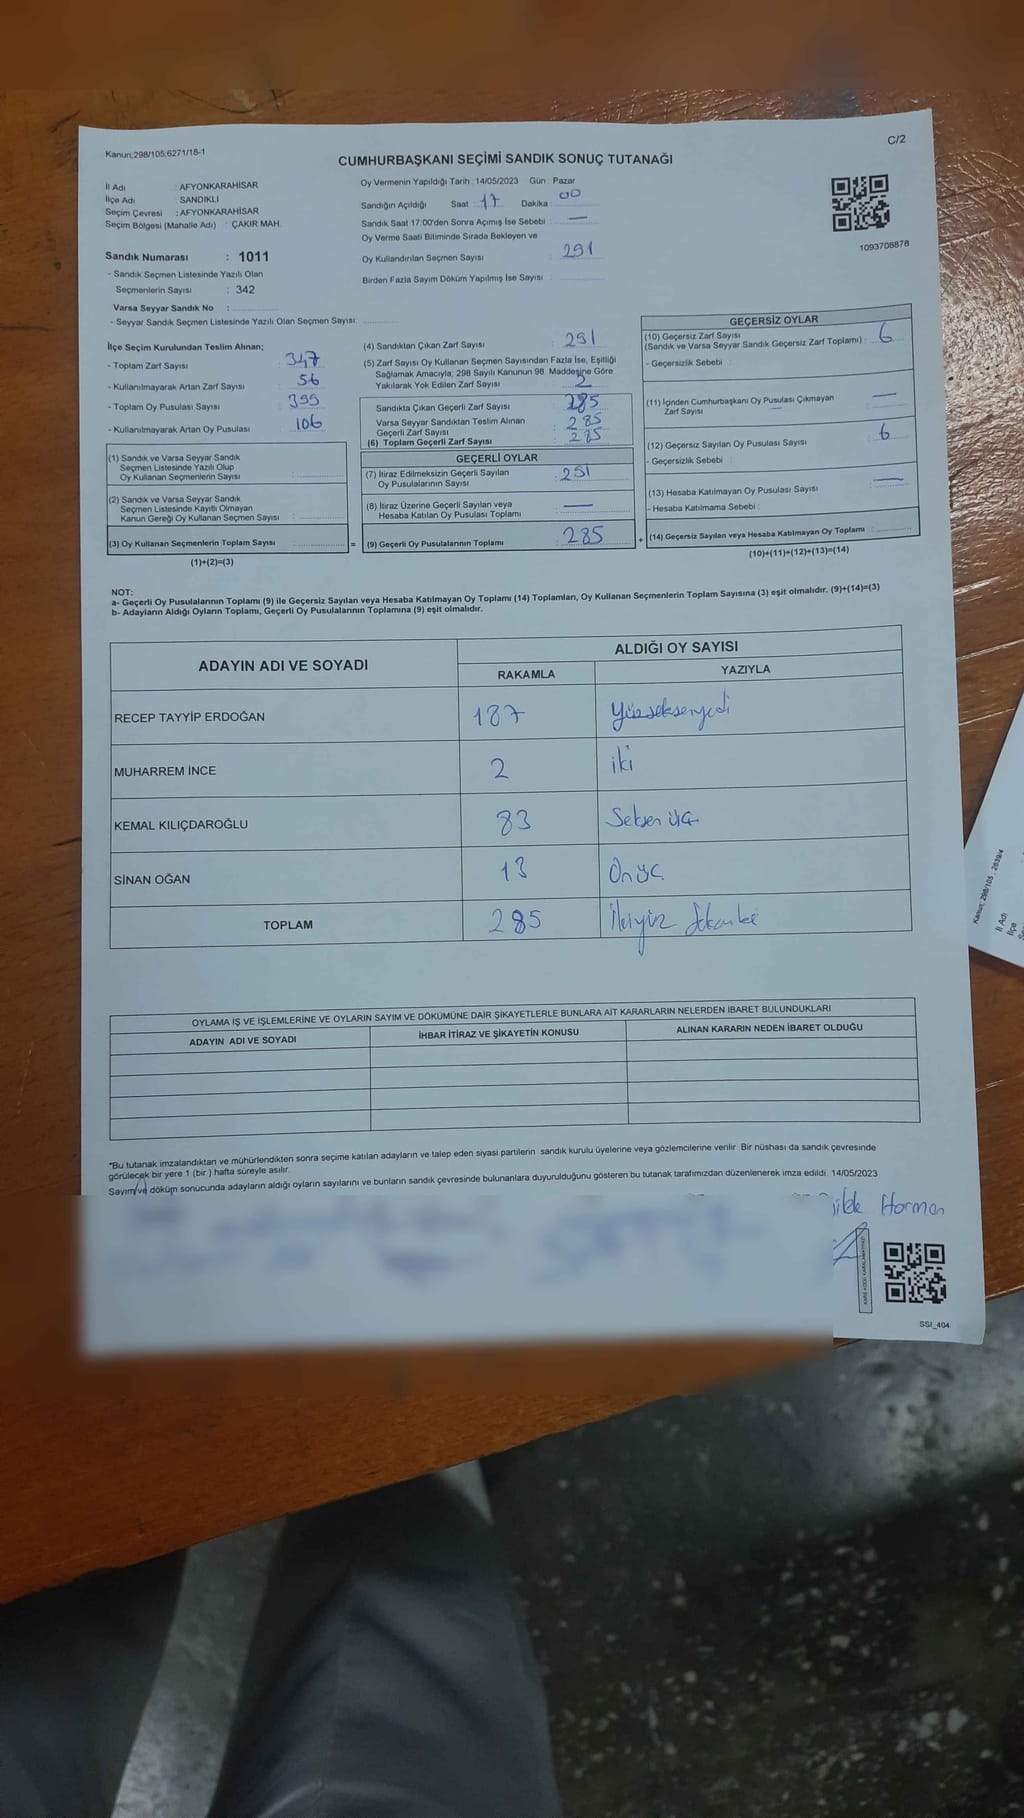 Kanun;298/105;6271/18-1
C/2
CUMHURBAŞKANI SEÇİMİ SANDIK SONUÇ TUTANAĞI
İl Adı : AFYONKARAHİSAR
İlçe Adı : SANDIKLI
Seçim Çevresi : AFYONKARAHİSAR
Seçim Bölgesi (Mahalle Adı) : ÇAKIR MAH.
Sandık Numarası : 1011
- Sandık Seçmen Listesinde Yazılı Olan
Seçmenlerin Sayısı : 342
Varsa Seyyar Sandık No :
- Seyyar Sandık Seçmen Listesinde Yazılı Olan Seçmen Sayısı:
Oy Vermenin Yapıldığı Tarih : 14/05/2023 Gün : Pazar
Sandığın Açıldığı Saat : 17 Dakika : 00
Sandık Saat 17:00'den Sonra Açımış İse Sebebi : —
Oy Verme Saati Bitiminde Sırada Bekleyen ve
Oy Kullandırılan Seçmen Sayısı : 291
Birden Fazla Sayım Döküm Yapılmış İse Sayısı :
1093706878
İlçe Seçim Kurulundan Teslim Alınan;
- Toplam Zarf Sayısı : 347
- Kullanılmayarak Artan Zarf Sayısı : 56
- Toplam Oy Pusulası Sayısı : 395
- Kullanılmayarak Artan Oy Pusulası : 106
(1) Sandık ve Varsa Seyyar Sandık
Seçmen Listesinde Yazılı Olup
Oy Kullanan Seçmenlerin Sayısı :
(2) Sandık ve Varsa Seyyar Sandık
Seçmen Listesinde Kayıtlı Olmayan
Kanun Gereği Oy Kullanan Seçmen Sayısı :
(3) Oy Kullanan Seçmenlerin Toplam Sayısı
(1)+(2)=(3)
(4) Sandıktan Çıkan Zarf Sayısı : 291
(5) Zarf Sayısı Oy Kullanan Seçmen Sayısından Fazla İse, Eşitliği
Sağlamak Amacıyla; 298 Sayılı Kanunun 98. Maddesine Göre
Yakılarak Yok Edilen Zarf Sayısı :
Sandıkta Çıkan Geçerli Zarf Sayısı : 285
Varsa Seyyar Sandıktan Teslim Alınan
Geçerli Zarf Sayısı : 285
(6) Toplam Geçerli Zarf Sayısı : 285
GEÇERLİ OYLAR
(7) İtiraz Edilmeksizin Geçerli Sayılan
Oy Pusulalarının Sayısı : 291
(8) İtiraz Üzerine Geçerli Sayılan veya
Hesaba Katılan Oy Pusulası Toplamı : —
= (9) Geçerli Oy Pusulalarının Toplamı : 285
GEÇERSİZ OYLAR
(10) Geçersiz Zarf Sayısı
(Sandık ve Varsa Seyyar Sandık Geçersiz Zarf Toplamı) : 6
- Geçersizlik Sebebi :
(11) İçinden Cumhurbaşkanı Oy Pusulası Çıkmayan
Zarf Sayısı : —
(12) Geçersiz Sayılan Oy Pusulası Sayısı : 6
- Geçersizlik Sebebi :
(13) Hesaba Katılmayan Oy Pusulası Sayısı : —
- Hesaba Katılmama Sebebi :
+ (14) Geçersiz Sayılan veya Hesaba Katılmayan Oy Toplamı :
(10)+(11)+(12)+(13)=(14)
NOT:
a- Geçerli Oy Pusulalarının Toplamı (9) ile Geçersiz Sayılan veya Hesaba Katılmayan Oy Toplamı (14) Toplamları, Oy Kullanan Seçmenlerin Toplam Sayısına (3) eşit olmalıdır. (9)+(14)=(3)
b- Adayların Aldığı Oyların Toplamı, Geçerli Oy Pusulalarının Toplamına (9) eşit olmalıdır.
ADAYIN ADI VE SOYADI
ALDIĞI OY SAYISI
RAKAMLA YAZIYLA
RECEP TAYYİP ERDOĞAN 187 Yüzseksenyedi
MUHARREM İNCE 2 iki
KEMAL KILIÇDAROĞLU 83 Seksen üç
SİNAN OĞAN 13 Onüç
TOPLAM 285 İkiyüz
OYLAMA İŞ VE İŞLEMLERİNE VE OYLARIN SAYIM VE DÖKÜMÜNE DAİR ŞİKAYETLERLE BUNLARA AİT KARARLARIN NELERDEN İBARET BULUNDUKLARI
ADAYIN ADI VE SOYADI İHBAR İTİRAZ VE ŞİKAYETİN KONUSU ALINAN KARARIN NEDEN İBARET OLDUĞU
*Bu tutanak imzalandıktan ve mühürlendikten sonra seçime katılan adayların ve talep eden siyasi partilerin sandık kurulu üyelerine veya gözlemcilerine verilir. Bir nüshası da sandık çevresinde
görülecek bir yere 1 (bir ) hafta süreyle asılır.
Sayım ve döküm sonucunda adayların aldığı oyların sayılarını ve bunların sandık çevresinde bulunanlara duyurulduğunu gösteren bu tutanak tarafımızdan düzenlenerek imza edildi. 14/05/2023
Harman
SSI_404
Kanun; 298/105 ; 2839/4
İl Adı
İlçe